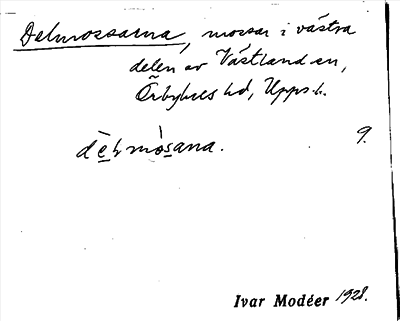 Delmossarna, mossar i västra
delen av Västland sn,
Örbyhus hd, Upps. l.
dèlmòsana. 9.
Ivar Modéer 1928.